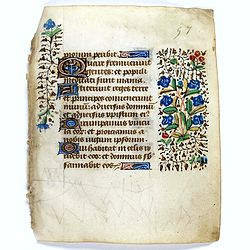 57
morum peribit.
Quare fremuerunt
gentes: et populi
meditati sunt inania.
Astiterunt reges terre
et principes convenerunt
in unum: adversus dominum
et adversus christum eius.
Dirumpamus vincula
eorum: et proiciamus a
nobis iugum ipsorum.
Qui habitat in celis irri
debit eos: et dominus sub
sannabit eos.